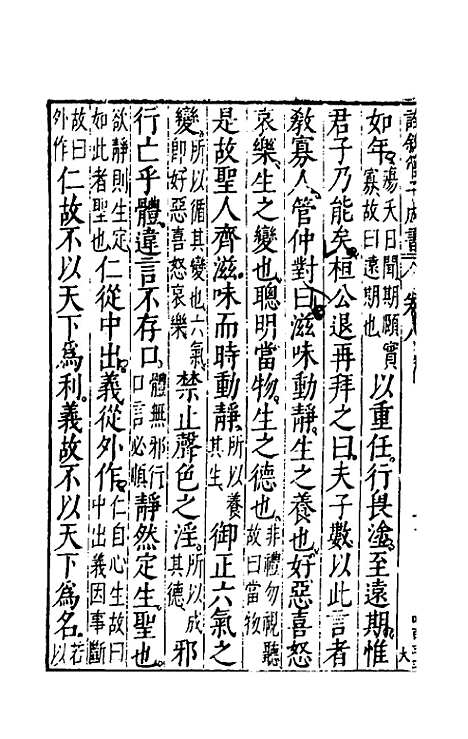 詮敘管子成書 卷八
如年殤夭日聞期頤實寡故曰遠期也以重任行畏塗至遠期惟
君子乃能矣桓公退再拜之曰夫子數以此言者
教寡人管仲對曰滋味動靜生之養也好惡喜怒
哀樂生之變也聰明當物生之德也非禮勿視聽故曰當物
是故聖人齊滋味而時動靜所以養其生御正六氣之
變所以循其變也六氣即好惡喜怒哀樂禁止聲色之淫所以成其德邪
行亡乎體違言不存口體無邪行口言必順靜然定生聖也
欲靜則生定如此者聖也仁從中出義從外作仁自心生故曰中出義因事斷
故曰外作仁故不以天下爲利義故不以天下爲名若以